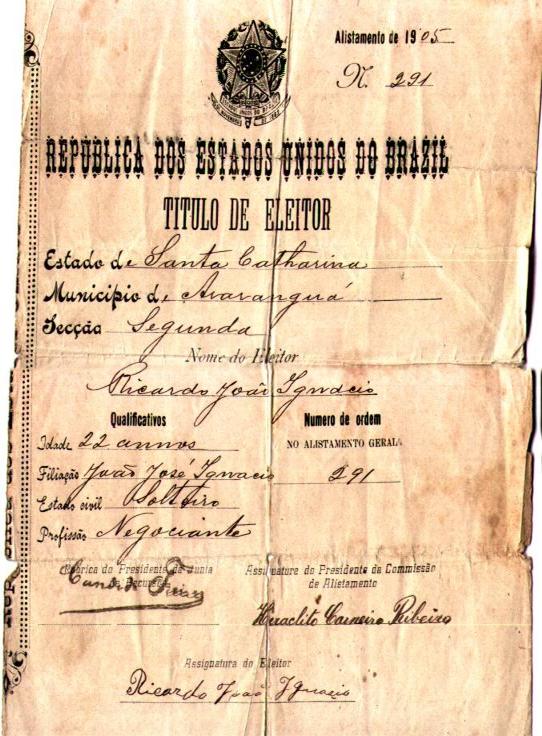 Alistamento de 1905
N. 291
REPUBLICA DOS ESTADOS UNIDOS DO BRAZIL
TITULO DE ELEITOR
Estado de Santa Catharina
Municipio de Araranguá
Secção Segunda
Nome do Eleitor
Ricardo João Ignacio
Qualificativos
Numero de ordem
Idade 22 annos
NO ALISTAMENTO GERAL
Filiação João José Ignacio
291
Estado civil Solteiro
Profissão Negociante
Rubrica do Presidente da Junta
de Recursos
Assignatura do Presidente da Commissão
de Alistamento
Heraclito Carneiro Ribeiro
Assignatura do Eleitor
Ricardo João Ignacio